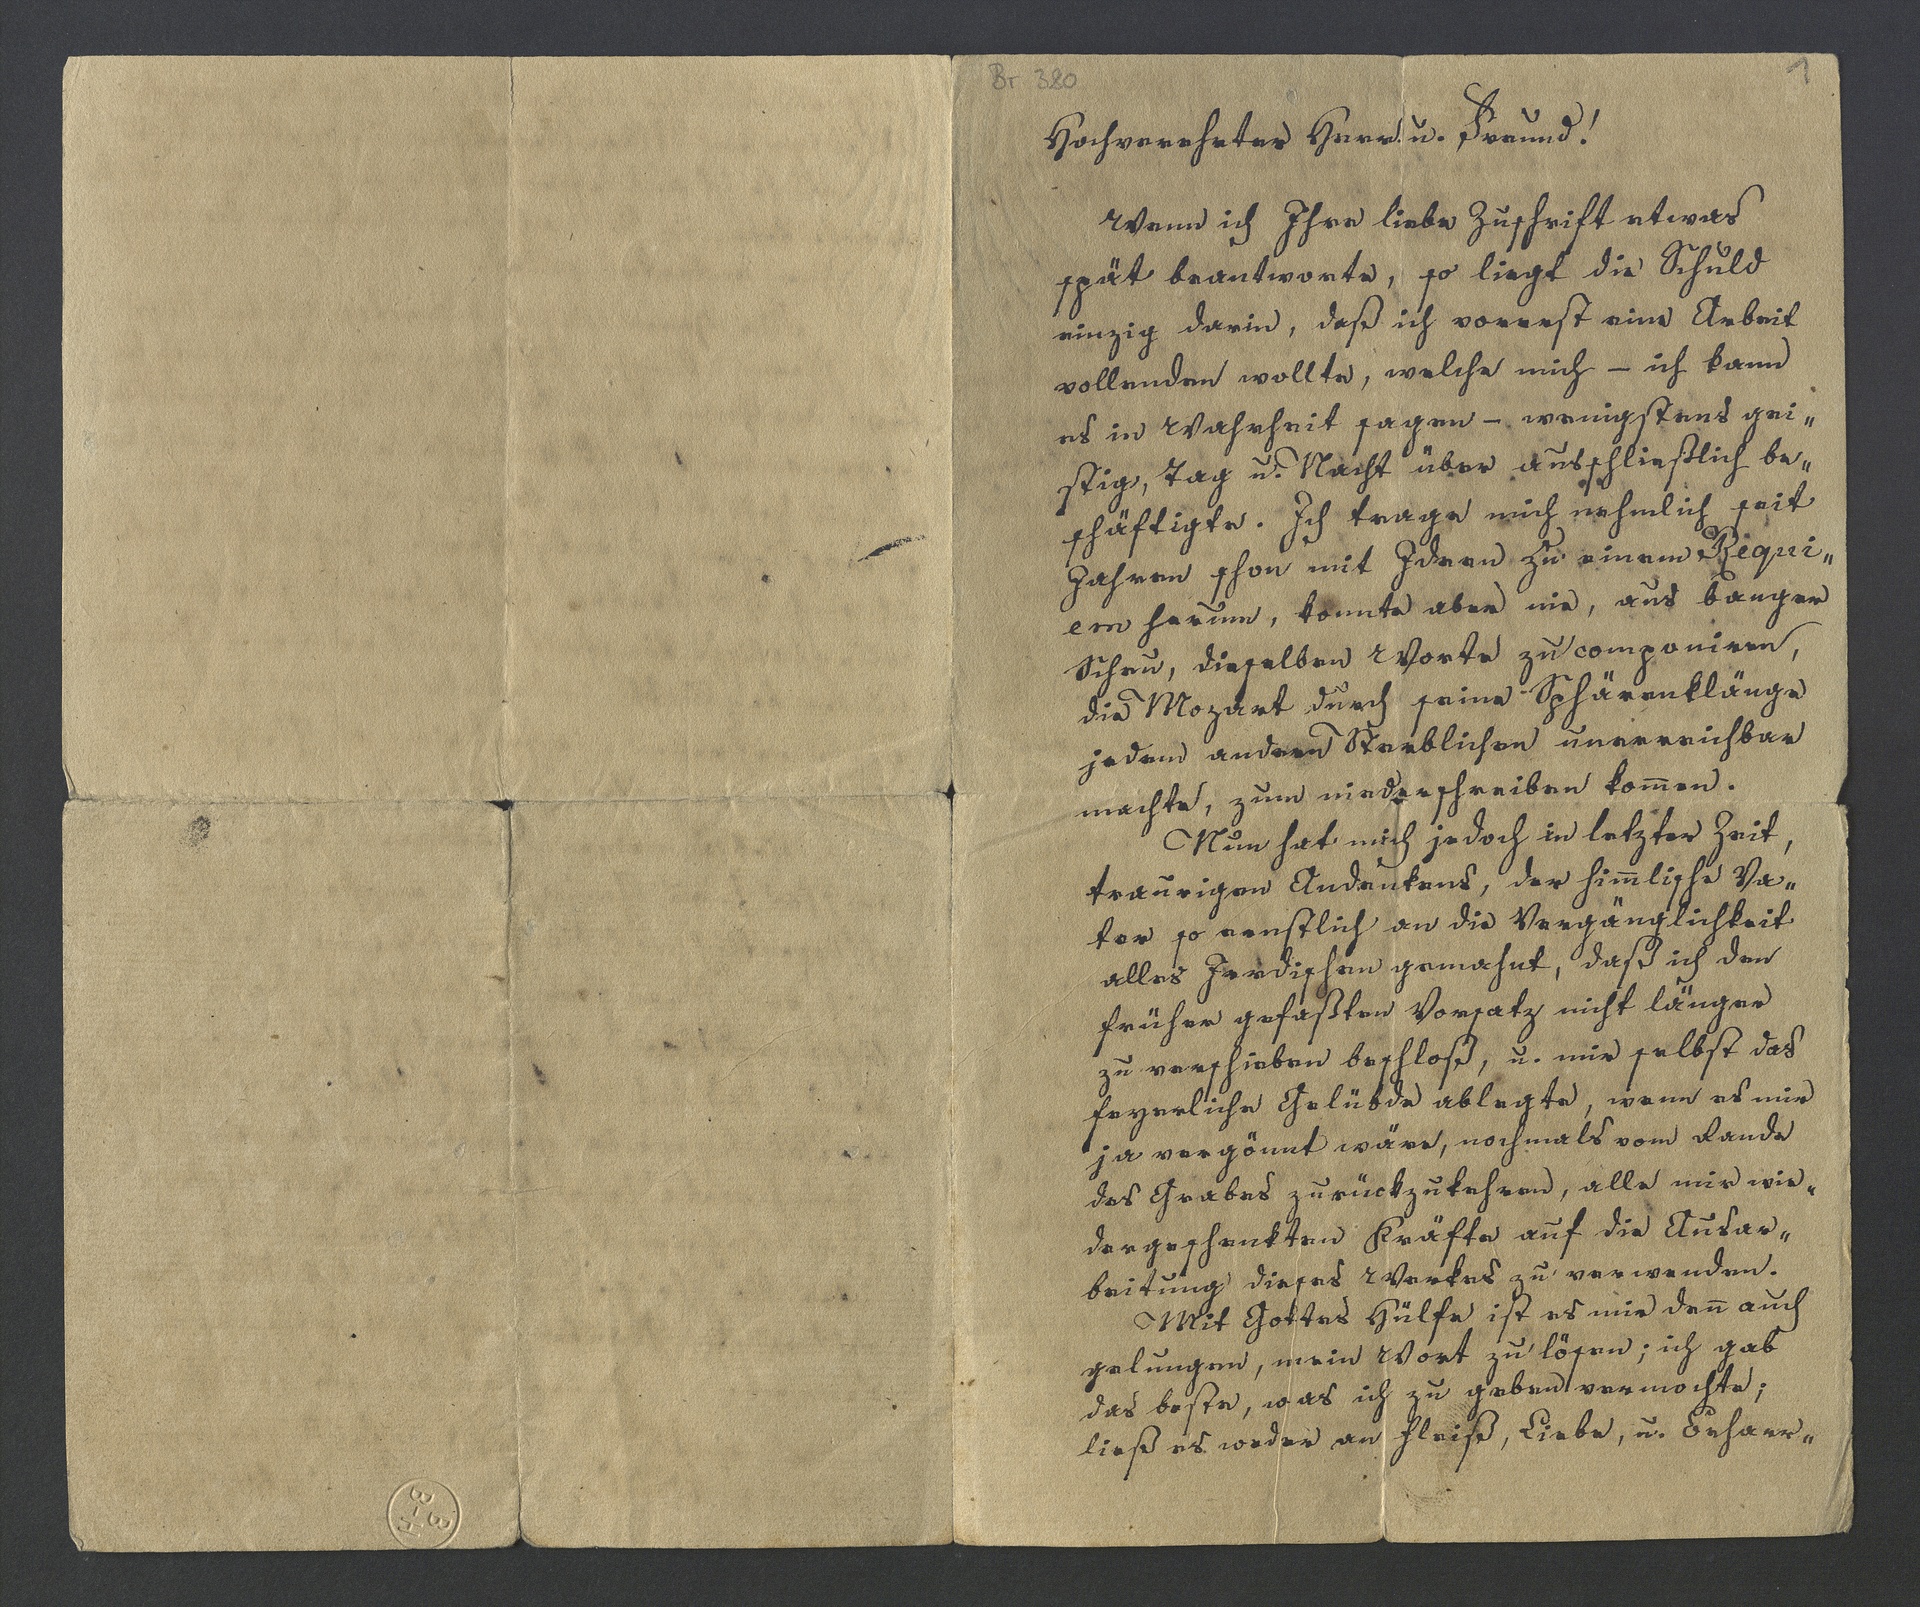 Br 380
1
Hochverehrter Herr u. Freund!
Wenn ich Ihre liebe Zuschrift etwas
spät beantworte, so liegt die Schuld
einzig darin, daß ich vorerst eine Arbeit
vollenden wollte, welche mich – ich kann
es in Wahrheit sagen – wenigstens gei„
stig, Tag u. Nacht über ausschließlich be„
schäftigte. Ich trage mich nehmlich seit
Jahren schon mit Ideen zu einem Requi„
em herum, konnte aber nie, aus banger
Scheu, dieselben Worte zu componiren,
die Mozart durch seine Sphärenklänge
jedem andern Sterblichen unerreichbar
machte, zum niederschreiben kom̅en.
Nun hat mich jedoch in letzter Zeit,
traurigen Andenkens, der him̅lische Va„
ter so ernstlich an die Vergänglichkeit
alles Irrdischen gemahnt, daß ich den
früher gefaßten Vorsatz nicht länger
zu verschieben beschloß, u. mir selbst das
feyerliche Gelübde ablegte, wenn es mir
ja vergönnt wäre, nochmals vom Rande
des Grabes zurückzukehren, alle mir wie„
dergeschenkten Kräfte auf die Ausar„
beitung dieses Werkes zu verwenden.
Mit Gottes Hülfe ist es mir den̅ auch
gelungen, mein Wort zu lösen; ich gab
das beste, was ich zu geben vermochte;
ließ es weder an Fleiß, Liebe, u. Erharr„
B–H
B